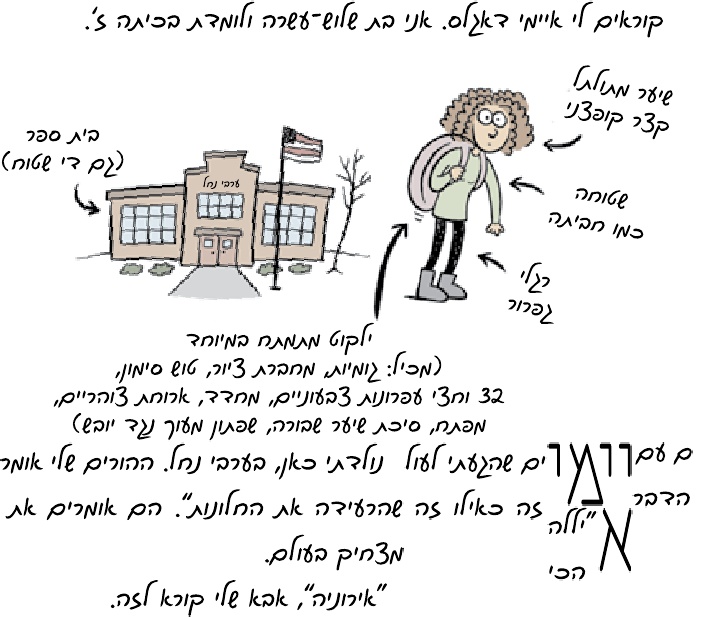 קוראים לי איימי דאגלס. אני בת שלוש־עשרה ולומדת בכיתה ז'.
שיער מתולתל
קצר קופצני
בית ספר
(גם די שטוח)
ערבי נחל
שטוחה
כמו חביתה
רגלי
גפרור
ילקוט מתמתח במיוחד
(מכיל: גומיות, מחברת ציור, טוש סימון,
32 וחצי עפרונות צבעוניים, מחדד, ארוחת צוהריים,
מפתח, סיכת שיער שבורה, שפתון מעוך נגד יובש)
נולדתי כאן, בערבי נחל. ההורים שלי אומר ים שהגעתי לעול ם עם
זה כאילו זה שהרעידה את החלונות". הם אומרים את "יללה הדבר
מצחיק בעולם. הכי
"אירוניה", אבא שלי קורא לזה.